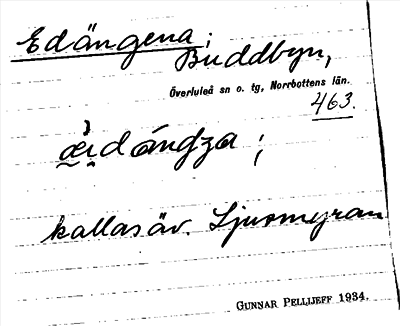 Edängena;
Buddbyn,
Överluleå sn o. tg, Norrbottens län.
463.
kallas äv. Ljusmyran
GUNNAR PELLIJEFF 1934.